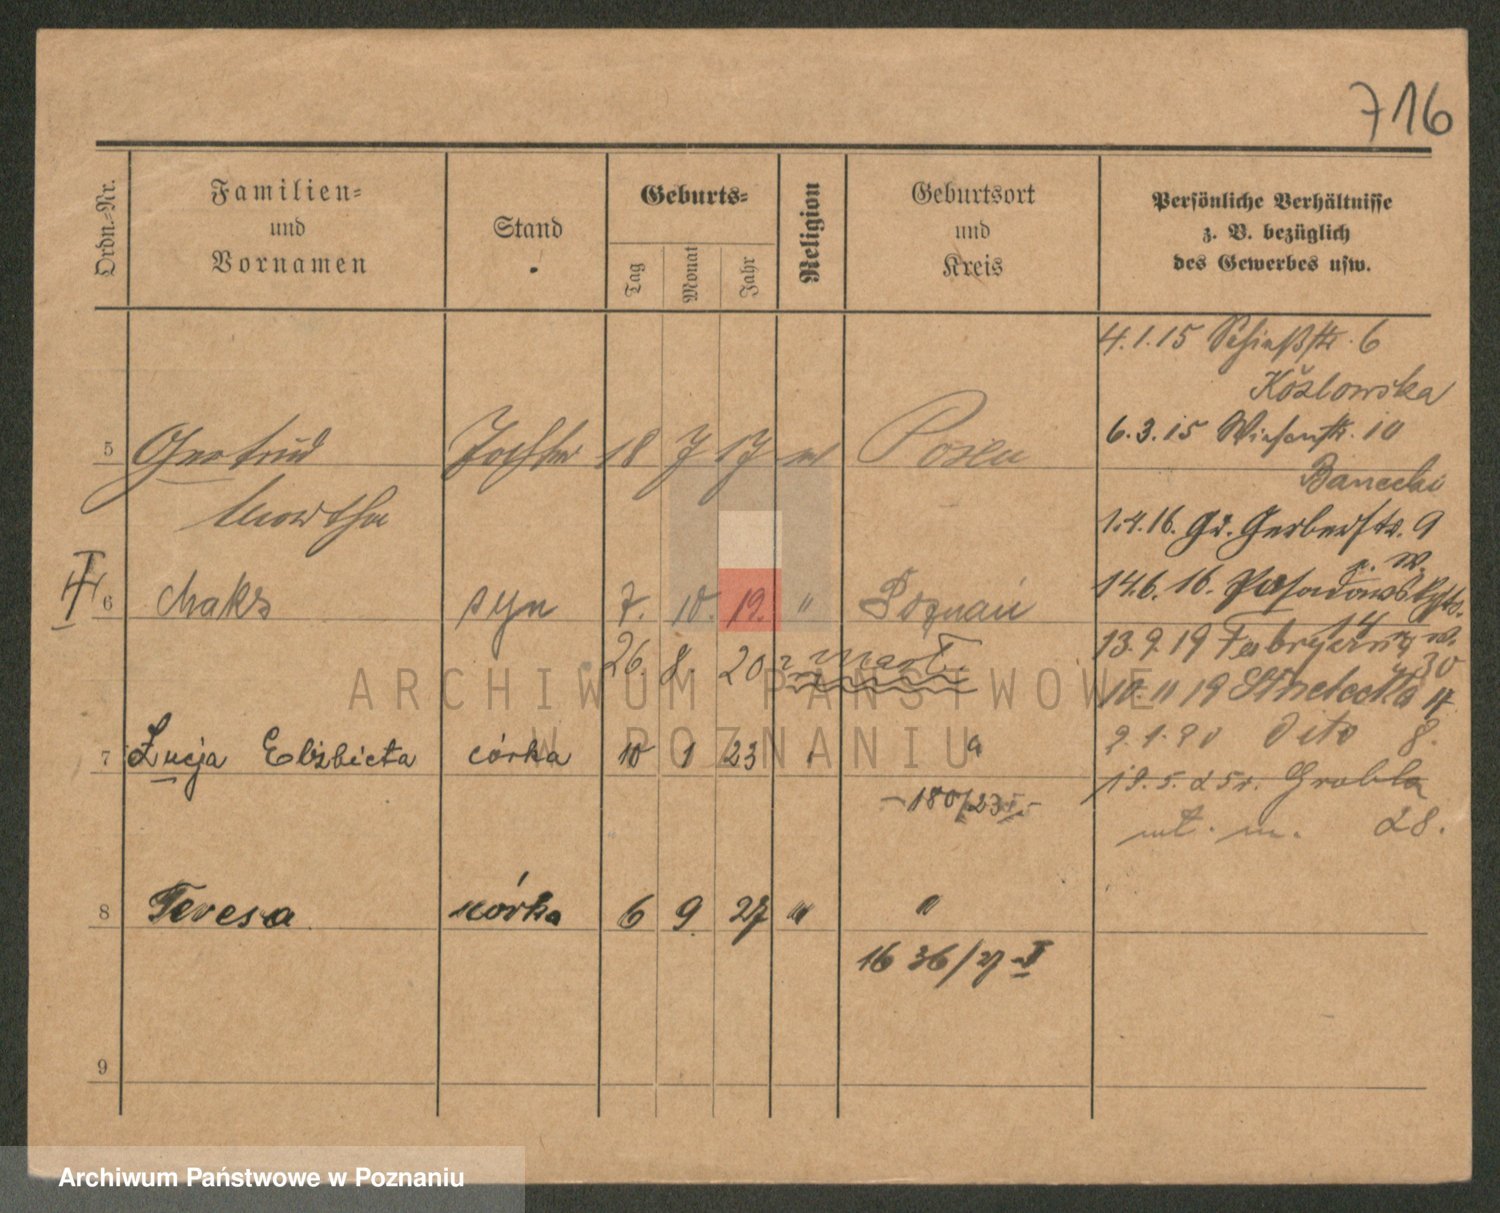 716
Ordn.-Nr.
Familien-
und
Vornamen
Stand
Geburts-
Tag
Monat
Jahr
Religion
Geburtsort
und
Kreis
Persönliche Verhältnisse
z. B. bezüglich
des Gewerbes usw.
4.1.15 Schießstr. 6
Kozlowska
6.3.15 Wiesenstr. 10
Banecki
5 Gertrud Tochter 18 7 17 Posen
Martha
1.4.16. Gr. Gerberstr. 9
14.6.16. Posadowskystr.
14
6 Maks syn 7. 10. 19. " Poznań
26. 8. 20
13.9.19
30
10. 11 19 Strzelecka
7 Łucja Elżbieta córka 10 1 23 "
2.1.20 dito 8.
19.5.25r. Grobla
28.
180/23
8 Teresa córka 6 9 27 " "
1636/27 I
9
ARCHIWUM PAŃSTWOWE
W POZNANIU
Archiwum Państwowe w Poznaniu